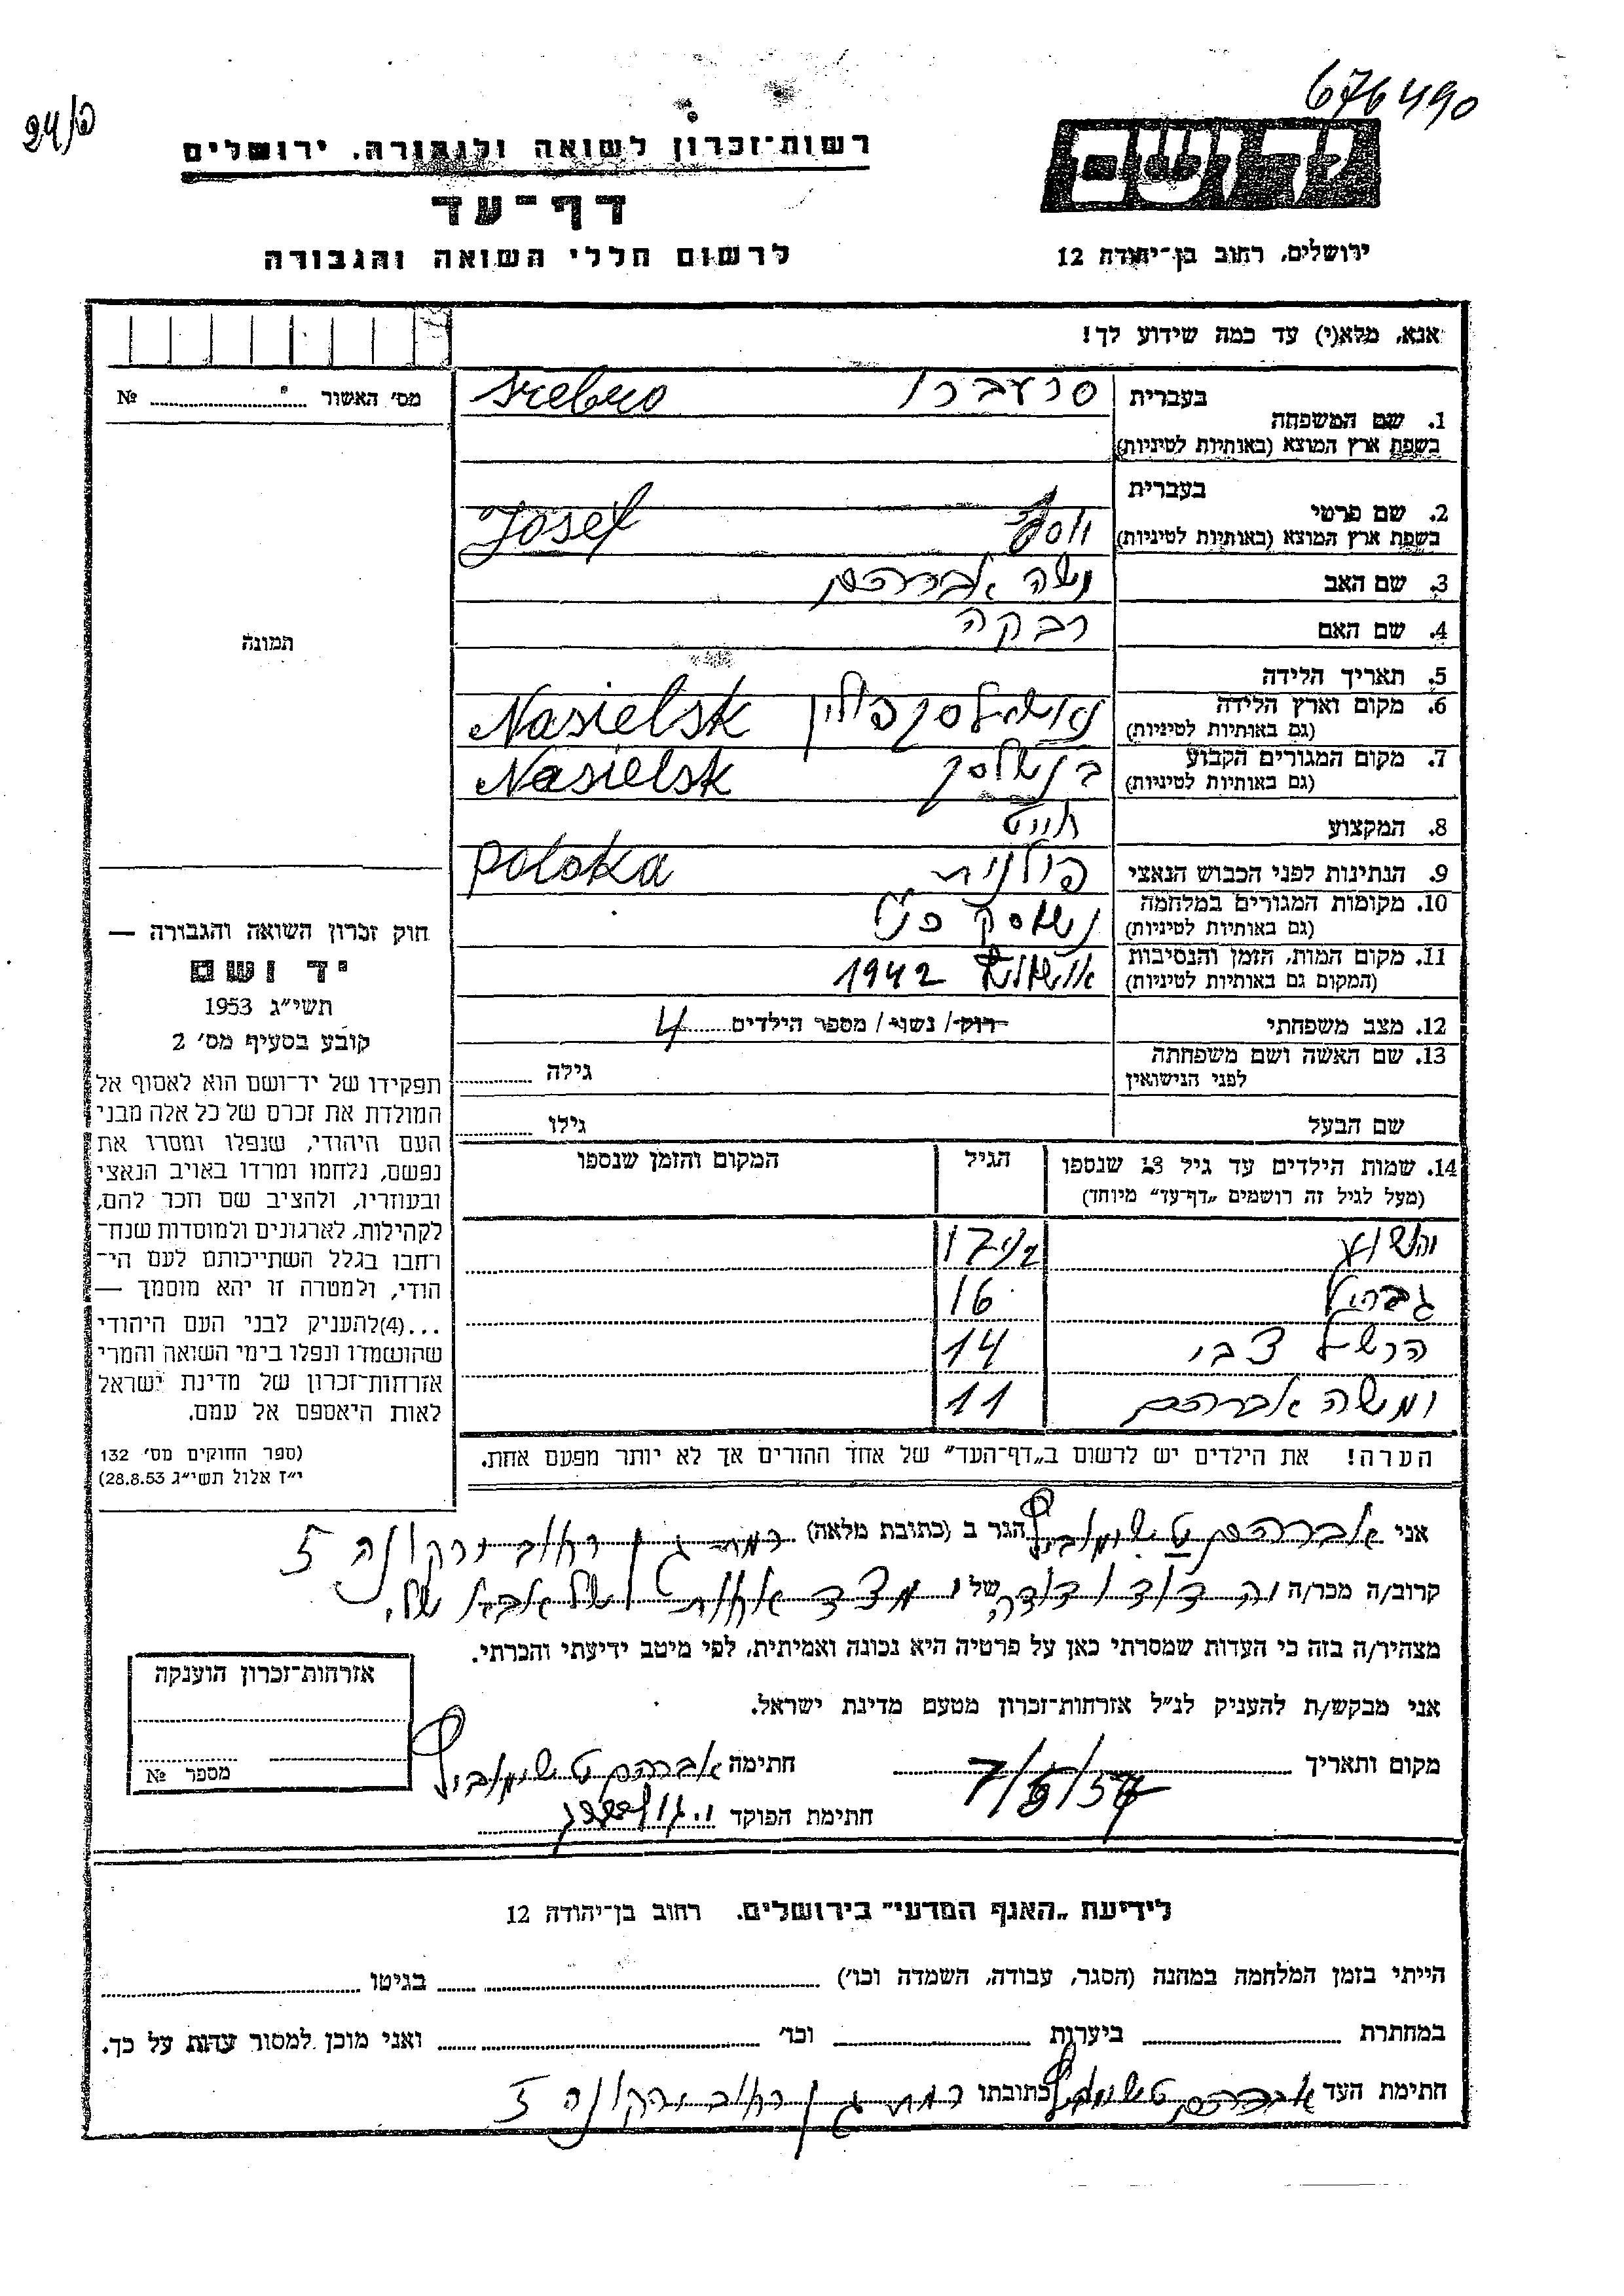 676490
24/פ
יד ושם
רשות־זכרון לשואה ולגבורה, ירושלים
דף־עד
לרשום חללי השואה והגבורה
ירושלים, רחוב בן־יהודה 12
אנא, מלא(י) עד כמה שידוע לך!
מס׳ האשור № 
1. שם המשפחה בעברית סרעברו Srebro
בשפת ארץ המוצא (באותיות לטיניות)
2. שם פרטי בעברית יוסף Josef
בשפת ארץ המוצא (באותיות לטיניות)
3. שם האב משה אברהם
4. שם האם רבקה
5. תאריך הלידה
6. מקום וארץ הלידה פולין Nasielsk
(גם באותיות לטיניות)
7. מקום המגורים הקבוע Nasielsk
(גם באותיות לטיניות)
8. המקצוע חייט
9. הנתינות לפני הכבוש הנאצי פולנית Polska
10. מקומות המגורים במלחמה
(גם באותיות לטיניות)
11. מקום המות, הזמן והנסיבות 1942
(המקום גם באותיות לטיניות)
12. מצב משפחתי רווק/ נשוי/ מספר הילדים 4
13. שם האשה ושם משפחתה לפני הנישואין גילה
שם הבעל גילו
14. שמות הילדים עד גיל 13 שנספו הגיל המקום והזמן שנספו
(מעל לגיל זה רושמים „דף־עד” מיוחד)
יהושוע 17 1/2
גבריאל 16
הרשל צבי 14
ומשה אברהם 11
הערה! את הילדים יש לרשום ב„דף־העד” של אחד ההורים אך לא יותר מפעם אחת.
תמונה
חוק זכרון השואה והגבורה —
יד ושם
תשי״ג 1953
קובע בסעיף מס׳ 2
תפקידו של יד־ושם הוא לאסוף אל
המולדת את זכרם של כל אלה מבני
העם היהודי, שנפלו ומסרו את
נפשם, נלחמו ומרדו באויב הנאצי
ובעוזריו, ולהציב שם וזכר להם,
לקהילות, לארגונים ולמוסדות שנח־
רחבו בגלל השתייכותם לעם הי־
הודי, ולמטרה זו יהא מוסמך —
...(4)להעניק לבני העם היהודי
שהושמדו ונפלו בימי השואה והמרי
אזרחות־זכרון של מדינת ישראל
לאות היאספם אל עמם.
(ספר החוקים מס׳ 132
י״ז אלול תשי״ג 28.8.53)
אני אברהם הגר ב (כתובת מלאה) רמת גן 5
קרוב/ה מכר/ה של
מצהיר/ה בזה כי העדות שמסרתי כאן על פרטיה היא נכונה ואמיתית, לפי מיטב ידיעתי והכרתי.
אני מבקש/ת להעניק לנ״ל אזרחות־זכרון מטעם מדינת ישראל.
מקום ותאריך חתימה אברהם
חתימת הפוקד
אזרחות־זכרון הוענקה
מספר №
לידיעת „האגף המדעי” בירושלים. רחוב בן־יהודה 12
הייתי בזמן המלחמה במחנה (הסגר, עבודה, השמדה וכו׳) בגיטו
במחתרת ביערות וכד׳ ואני מוכן למסור עדות על כך.
חתימת העד אברהם כתובתו רמת גן 5